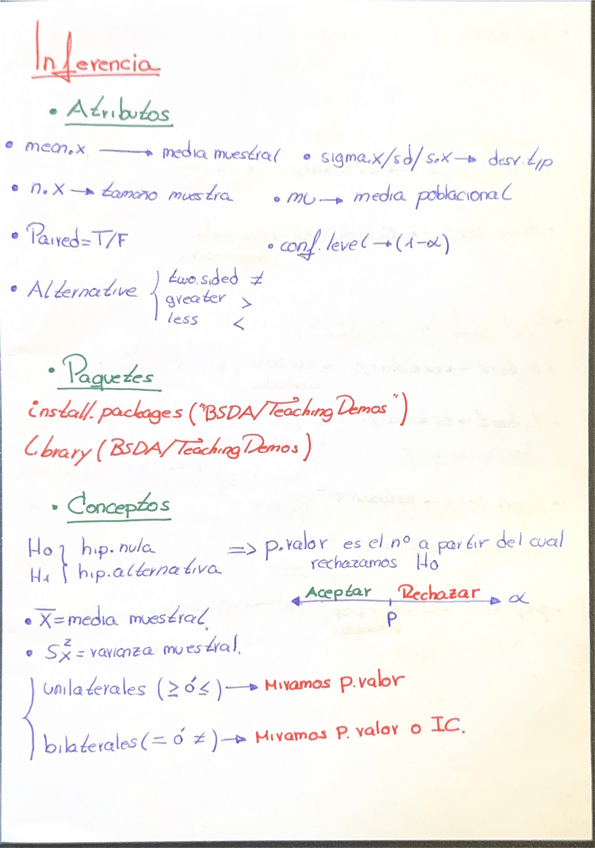 Inferencia
• Atributos
• mean.x → media muestral • sigma.x/sd/s.x → desv.tip
• n.x → tamaño muestra • mu → media poblacional
• Paired=T/F • conf.level → (1-α)
• Alternative { two.sided ≠
greater >
less <
• Paquetes
install.packages("BSDA/TeachingDemos")
Library(BSDA/TeachingDemos)
• Conceptos
Ho } hip.nula => p.valor es el nº a partir del cual
rechazamos Ho
H1 { hip.alternativa
Aceptar Rechazar α
P
• X̅=media muestral.
• Sx²=varianza muestral.
{ unilaterales (≥ ó ≤) → Miramos p.valor
bilaterales (= ó ≠) → Miramos P.valor o IC.